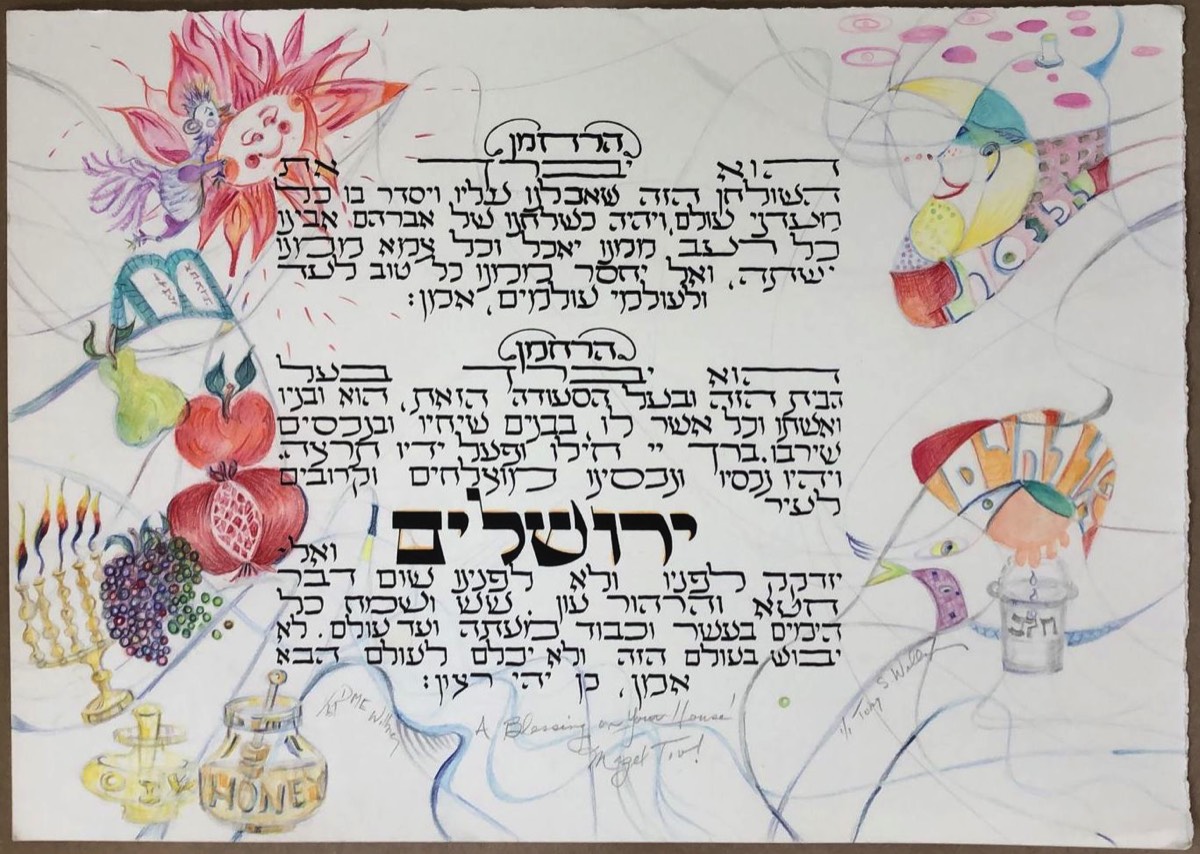 הרחמן
הוא יברך את
השולחן הזה שאכלנו עליו, ויסדר בו כל
מעדני עולם, ויהיה כשלחנו של אברהם אבינו
כל רעב ממנו יאכל וכל צמא ממנו
ישתה, ואל יחסר ממנו כל טוב לעד
ולעולמי עולמים, אמן:
הרחמן
הוא יברך בעל
הבית הזה ובעל הסעודה הזאת, הוא ובניו
ואשתו וכל אשר לו, בבנים שיחיו ובנכסים
שירבו. ברך יי חילו ופעל ידיו תרצה.
ויהיו נכסיו ונכסינו מוצלחים וקרובים
לעיר
ירושלים ואל
יזדקק לפניו ולא לפנינו שום דבר
חטא והרהור עון. שש ושמח כל
הימים בעשר וכבוד מעתה ועד עולם. לא
יבוש בעולם הזה ולא יכלם לעולם הבא
אמן, כן יהי רצון:
A Blessing on Your House!
Mazel Tov!
1/1 Toby S. Will
HONEY